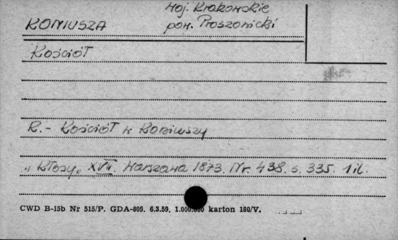 Woj. Krakowskie
KONIUSZA pow. Proszowicki
Kościół
R. - Kościół w Koniuszy
"Kłosy" XVII. Warszawa 1873. Nr. 438. s. 335. 1 il.
CWD B-15b Nr 515/P. GDA-805. 6.3.59, 1.000.000 karton 180/V.